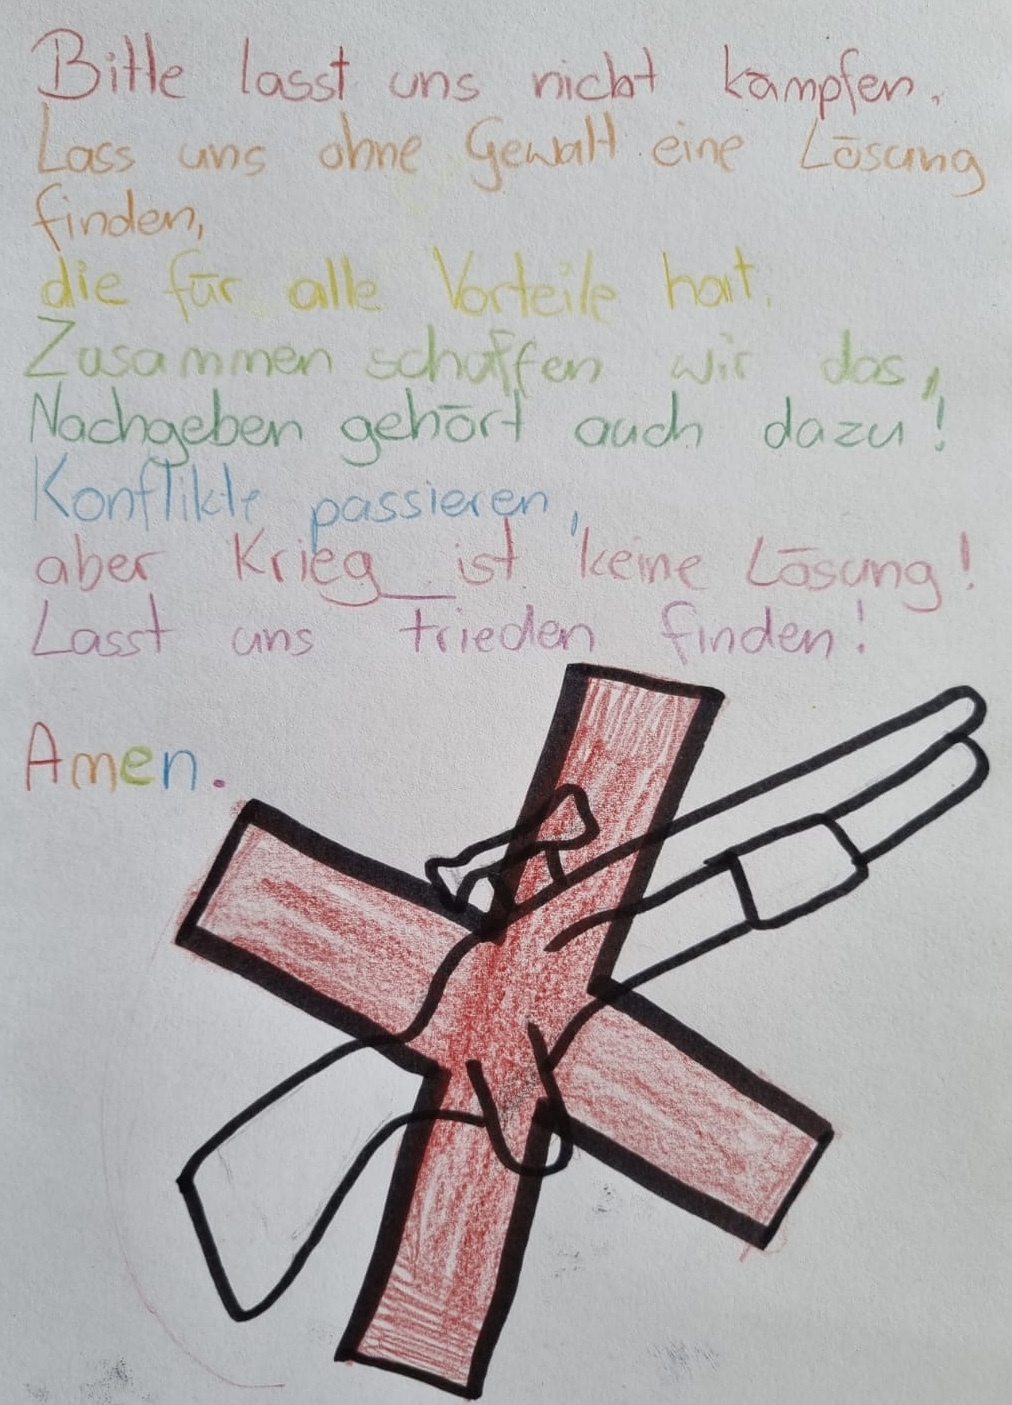 Bitte lasst uns nicht kämpfen.
Lass uns ohne Gewalt eine Lösung
finden,
die für alle Vorteile hat.
Zusammen schaffen wir das,
Nachgeben gehört auch dazu!
Konflikte passieren,
aber Krieg ist keine Lösung!
Lasst uns Frieden finden!
Amen.